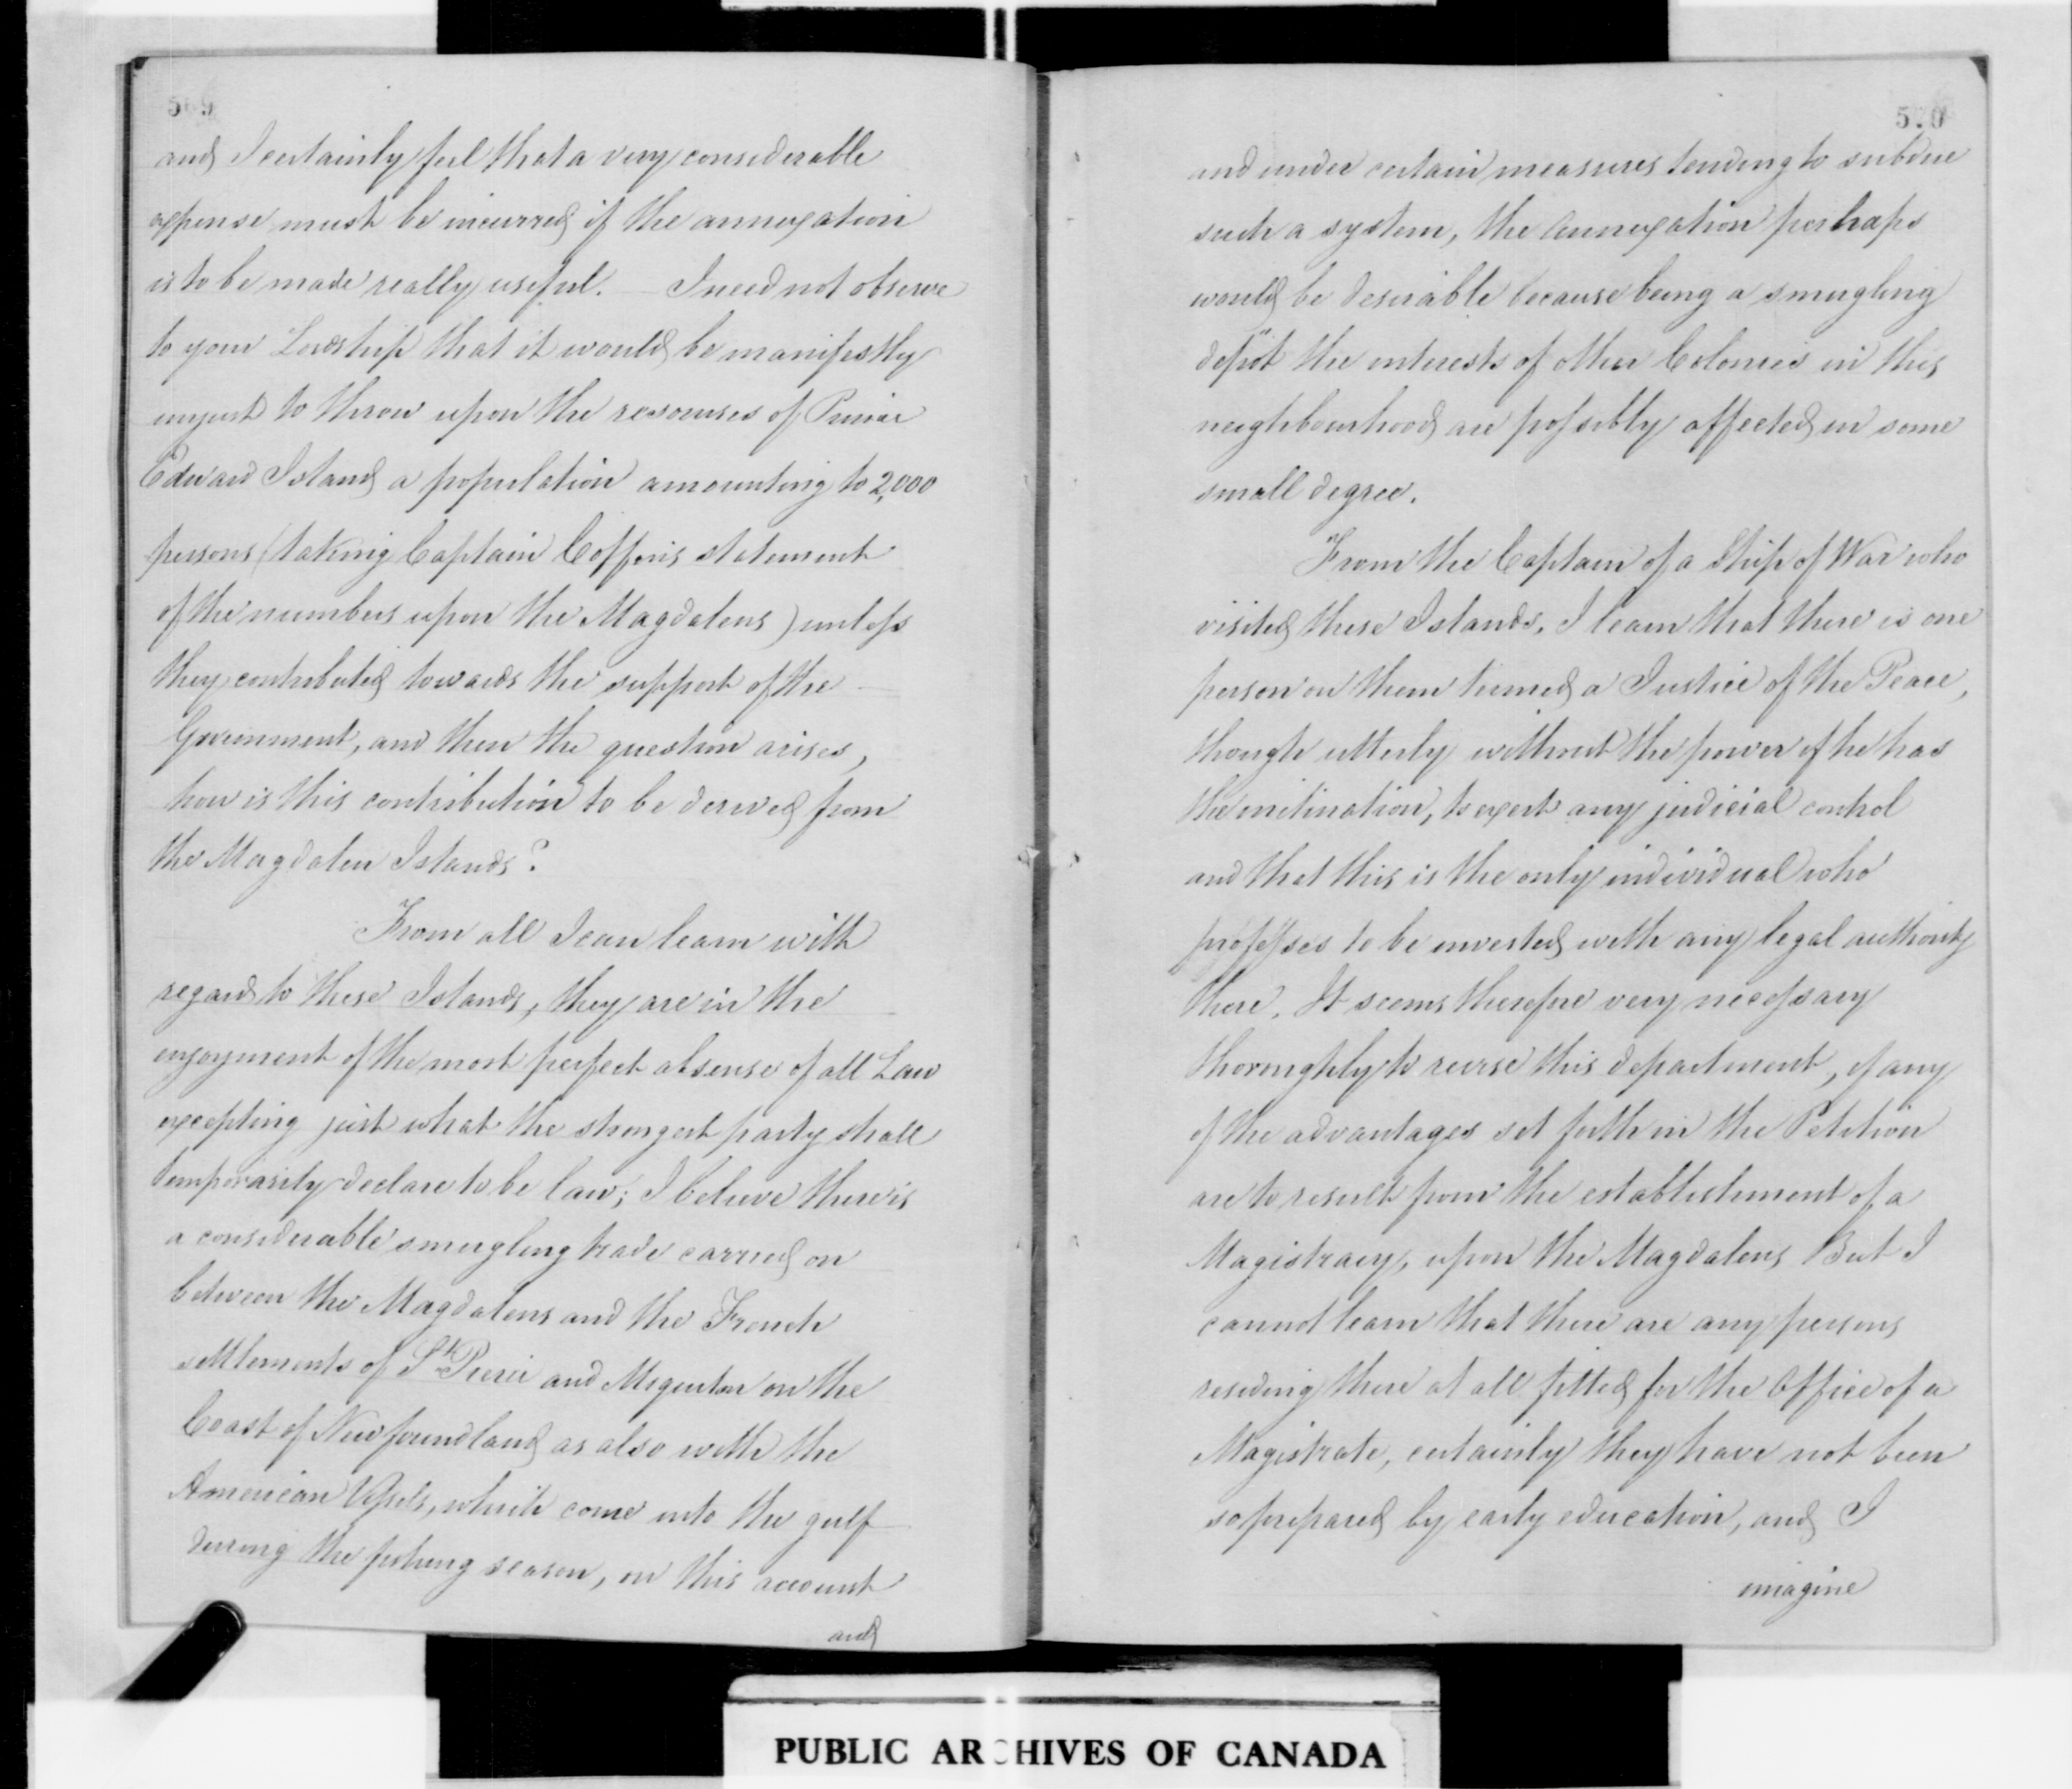 569
and I certainly feel that a very considerable
expense must be incurred if the annexation
is to be made really useful. — I need not observe
to your Lordship that it would be manifestly
unjust to throw upon the resourses of Prince
Edward Island a population amounting to 2,000
persons (taking Captain Coffins statement
of the numbers upon the Magdalens) unless
they contributed towards the support of the
Government, and then the question arises,
how is this contribution to be derived from
the Magdalen Islands?
From all I can learn with
regard to these Islands, they are in the
enjoyment of the most perfect absense of all Law
excepting just what the strongest party shall
temporarily declare to be law; I believe there is
a considerable smugling trade carried on
between the Magdalens and the French
settlements of St Pierre and Miquelon on the
Coast of Newfoundland as also with the
American Vessels, which come into the gulf
during the fishing season, on this account
and
570
and under certain measures tending to subdue
such a system, the Annexation perhaps
would be desirable because being a smugling
depôt the interests of other Colonies in this
neighbourhood are possibly affected in some
small degree.
From the Captain of a Ship of War who
visited these Islands, I learn that there is one
person on them termed a Justice of the Peace,
though utterly without the power if he has
the inclination, to exert any judicial control
and that this is the only individual who
professes to be invested with any legal authority
there. It seems therefore very necessary
thoroughly to revise this department, if any
of the advantages set forth in the Petition
are to result from the establishment of a
Magistracy, upon the Magdalens But I
cannot learn that there are any persons
residing there at all fitted for the Office of a
Magistrate, certainly they have not been
so prepared by early education, and I
imagine
PUBLIC ARCHIVES OF CANADA